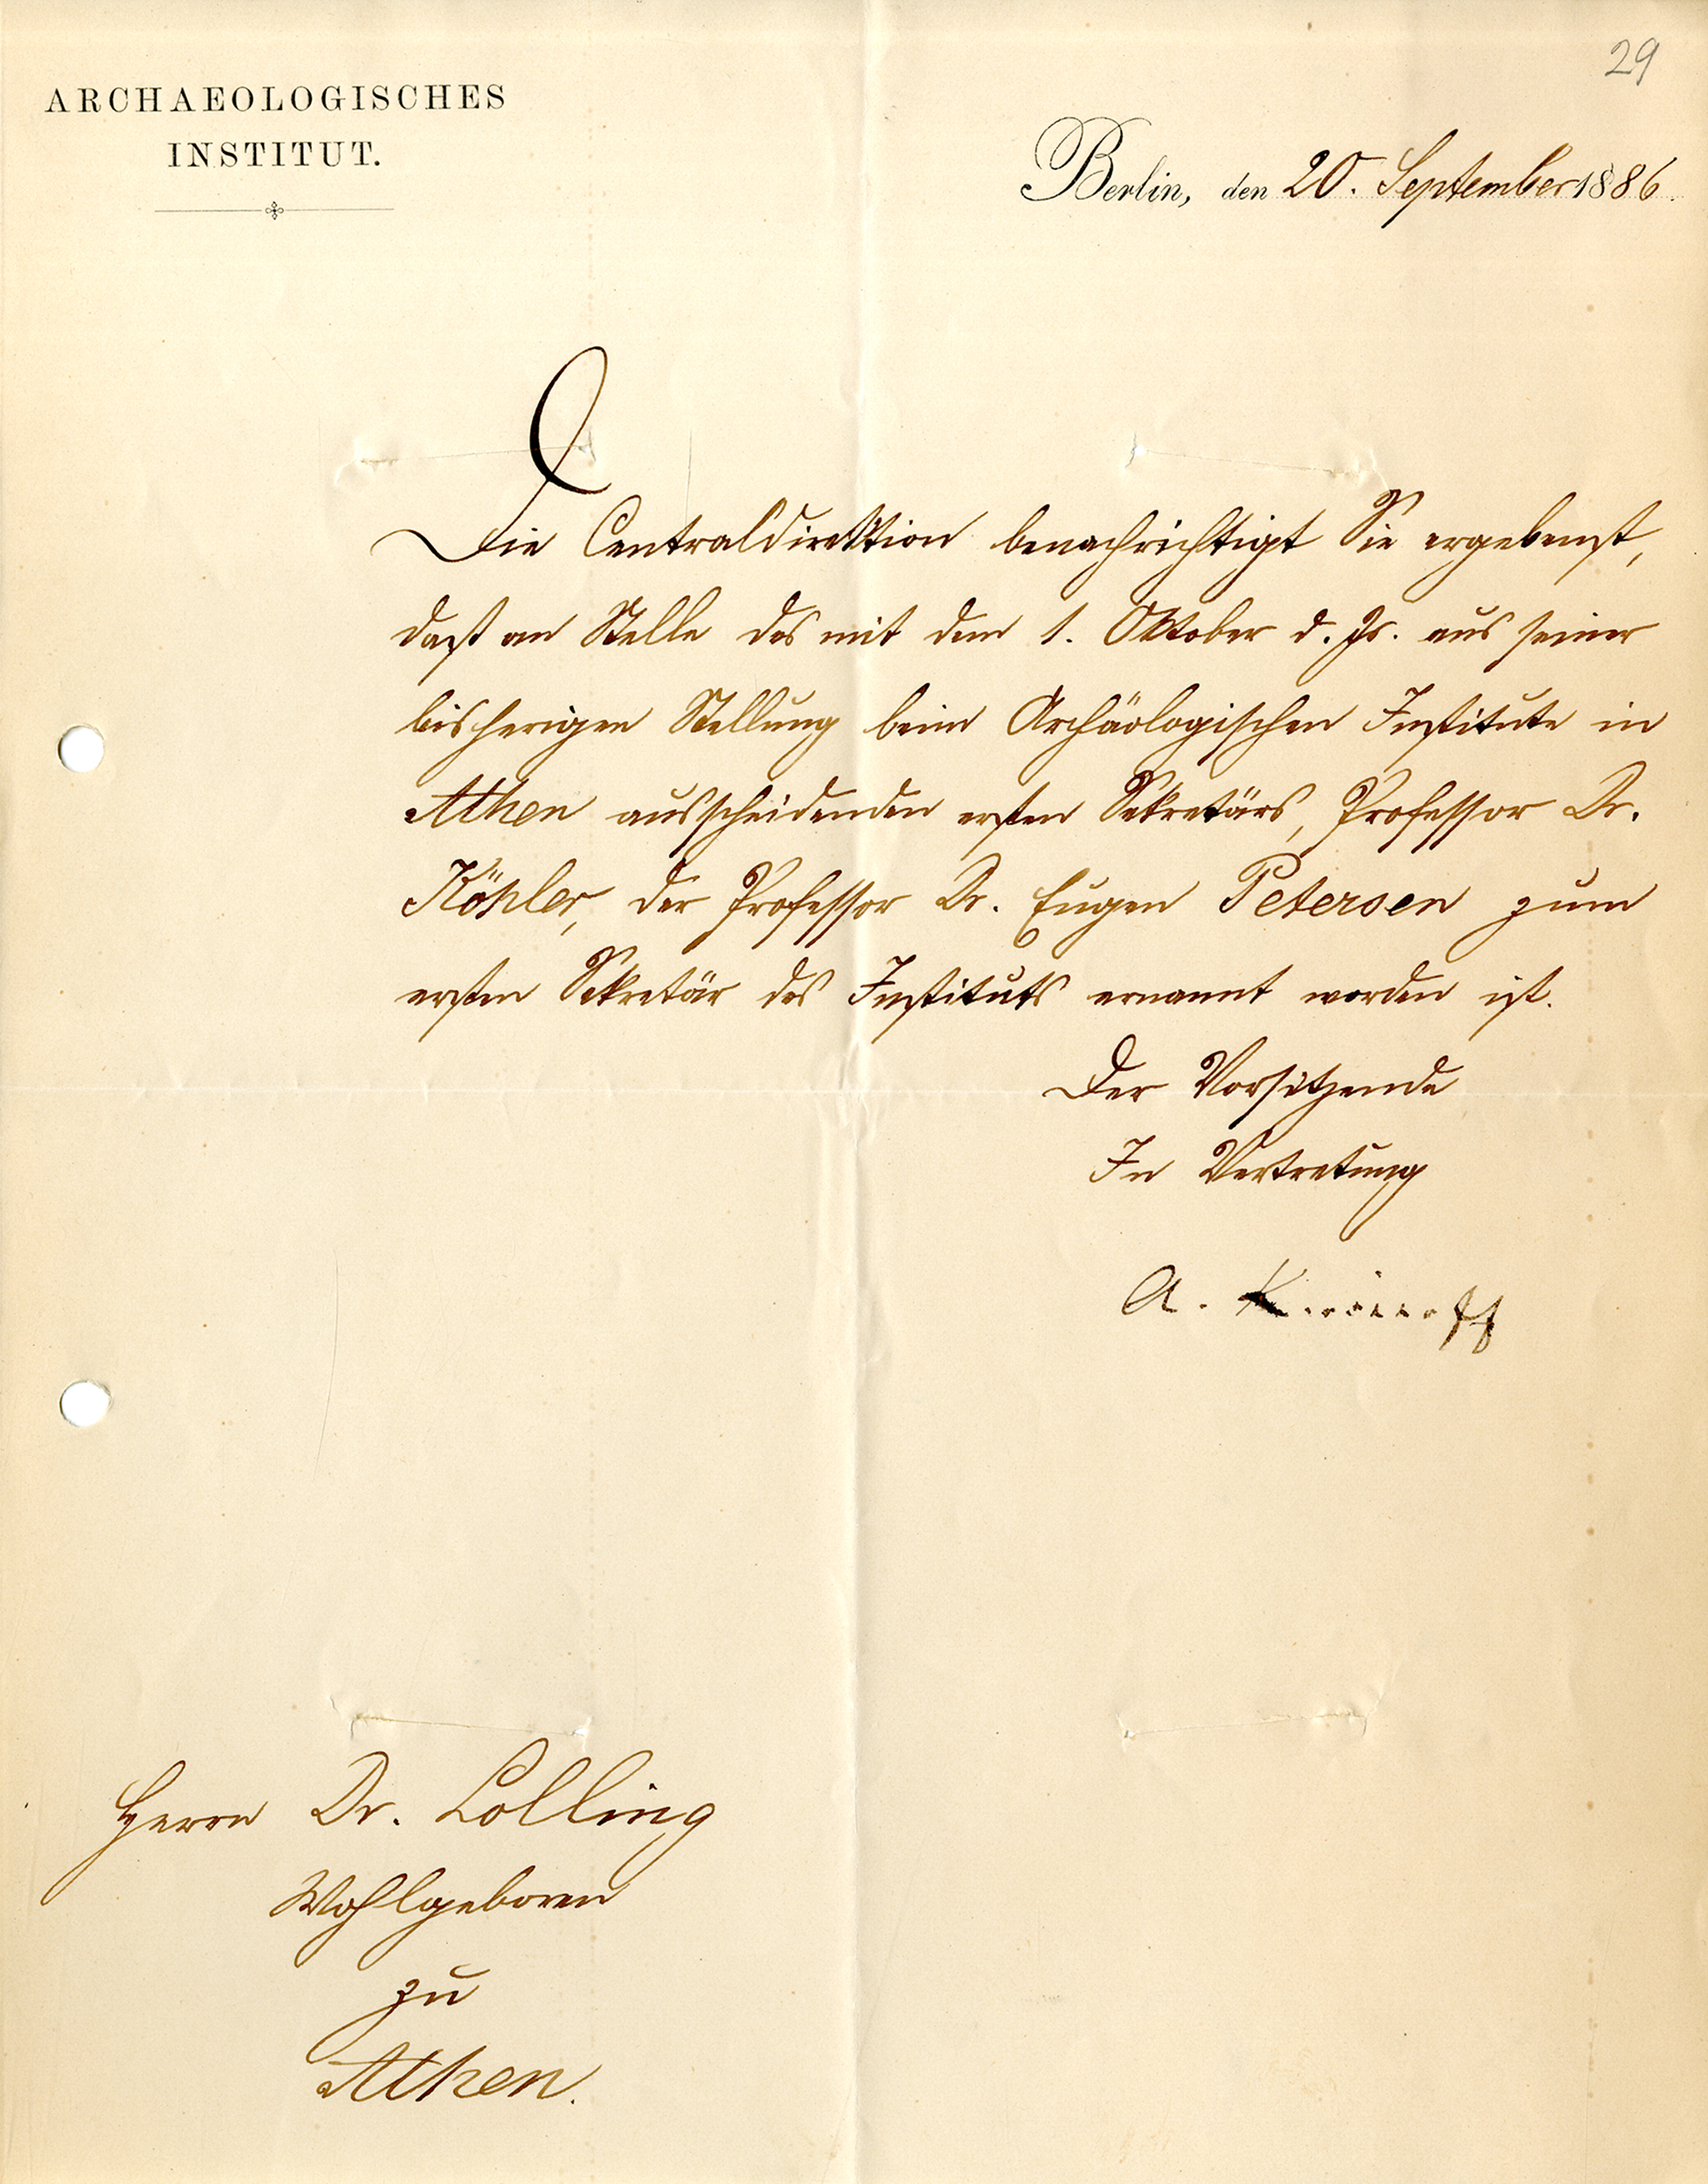 29
ARCHAEOLOGISCHES
INSTITUT.
Berlin, den 20. September 1886.
Die Centraldirektion benachrichtigt Sie ergebenst,
daß an Stelle des mit dem 1. Oktober d. Js. aus seiner
bisherigen Stellung beim Archäologischen Institute in
Athen ausscheidenden ersten Sekretärs, Professor Dr.
Köhler, der Professor Dr. Eugen Petersen zum
ersten Sekretär des Instituts ernannt worden ist.
Der Vorsitzende
In Vertretung
A. Kirchhoff
Herrn Dr. Lolling
Wohlgeboren
zu
Athen.